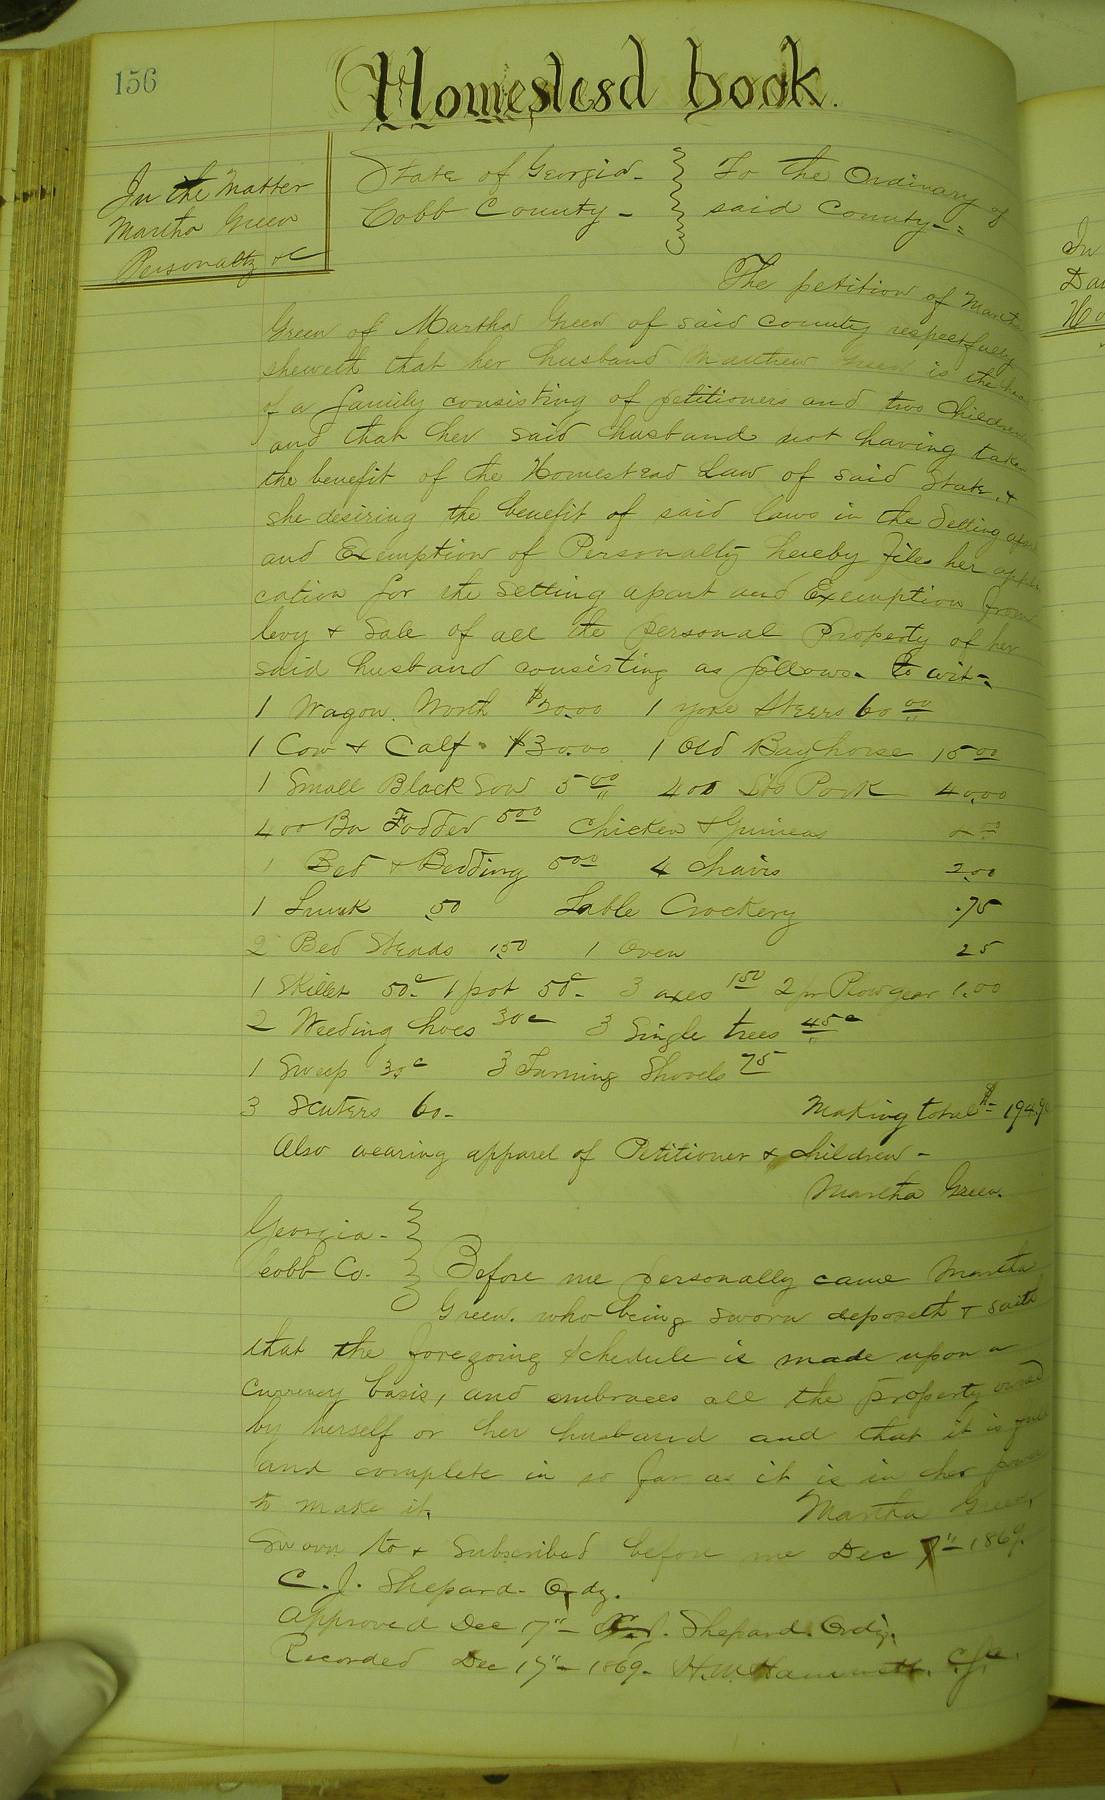 156
Homestead book.
In the Matter
Martha Green
Personalty &C
State of Georgia -
Cobb County -
To the Ordinary of
said County - :
The petition of Martha
Green of Martha Green of said county respectfully
sheweth that her husband Matthew Green is the head
of a family consisting of petitioners and two children
and that her said husband not having taken
the benefit of the Homestead Law of said State, &
she desiring the benefit of said laws in the Setting apart
and Exemption of Personalty hereby files her appli
cation for the setting apart and Exemption from
levy & Sale of all the personal Property of her
said husband consisting as follows. to wit -.
1 Wagon. Worth $20.00 1 yoke Steers 60 00
1 Cow & Calf. $30.00 1 Old Bay horse 15 00
1 Small Black Sow 5 00 400 lbs Pork 40.00
400 Bn Fodder 5 00 Chicken & Guineas
1 Bed & Bedding 5 00 4 Chairs 2.00
1 Trunk .50 Table Crockery .75
2 Bed Steads 1.50 1 Oven 25
1 Skillet 50c. 1 pot 50c - 3 axes 1 50 2 pr Plow gear 1.00
2 Weeding hoes 30c 3 Single trees 45c
1 Sweep 30c 3 Turning Shovels 75
3 Scuters 60 - Making total $ 194.90
Also wearing apparel of Petitioner & children -
Martha Green.
Georgia -
Cobb Co.
Before me personally came Martha
Green. who being sworn deposeth & saith
that the foregoing schedule is made upon a
Currency basis, and embraces all the Property owned
by herself or her husband and that it is full
and complete in so far as it is in her power
to make it. Martha Green,
Sworn to & Subscribed before me Dec 7" 1869.
C. J. Shepard - Ordy.
Approved Dec 7" - C. J. Shepard. Ordy.
Recorded Dec 17" - 1869 - H. M. Hammett.